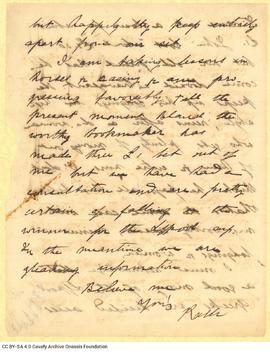 but happily keep entirely
apart from
I am taking lessons in
horse racing & am pro
gressing favorably till the
present moment Blaud the
worthy bookmaker has
made three L. bet out of
me but we have had a
consultation and are pretty
certain of falling on the
winner for the Ascot cup.
In the meantime we are
gleaning information
Believe me
Your's
Ralli
CC BY-SA 4.0 Cavafy Archive Onassis Foundation